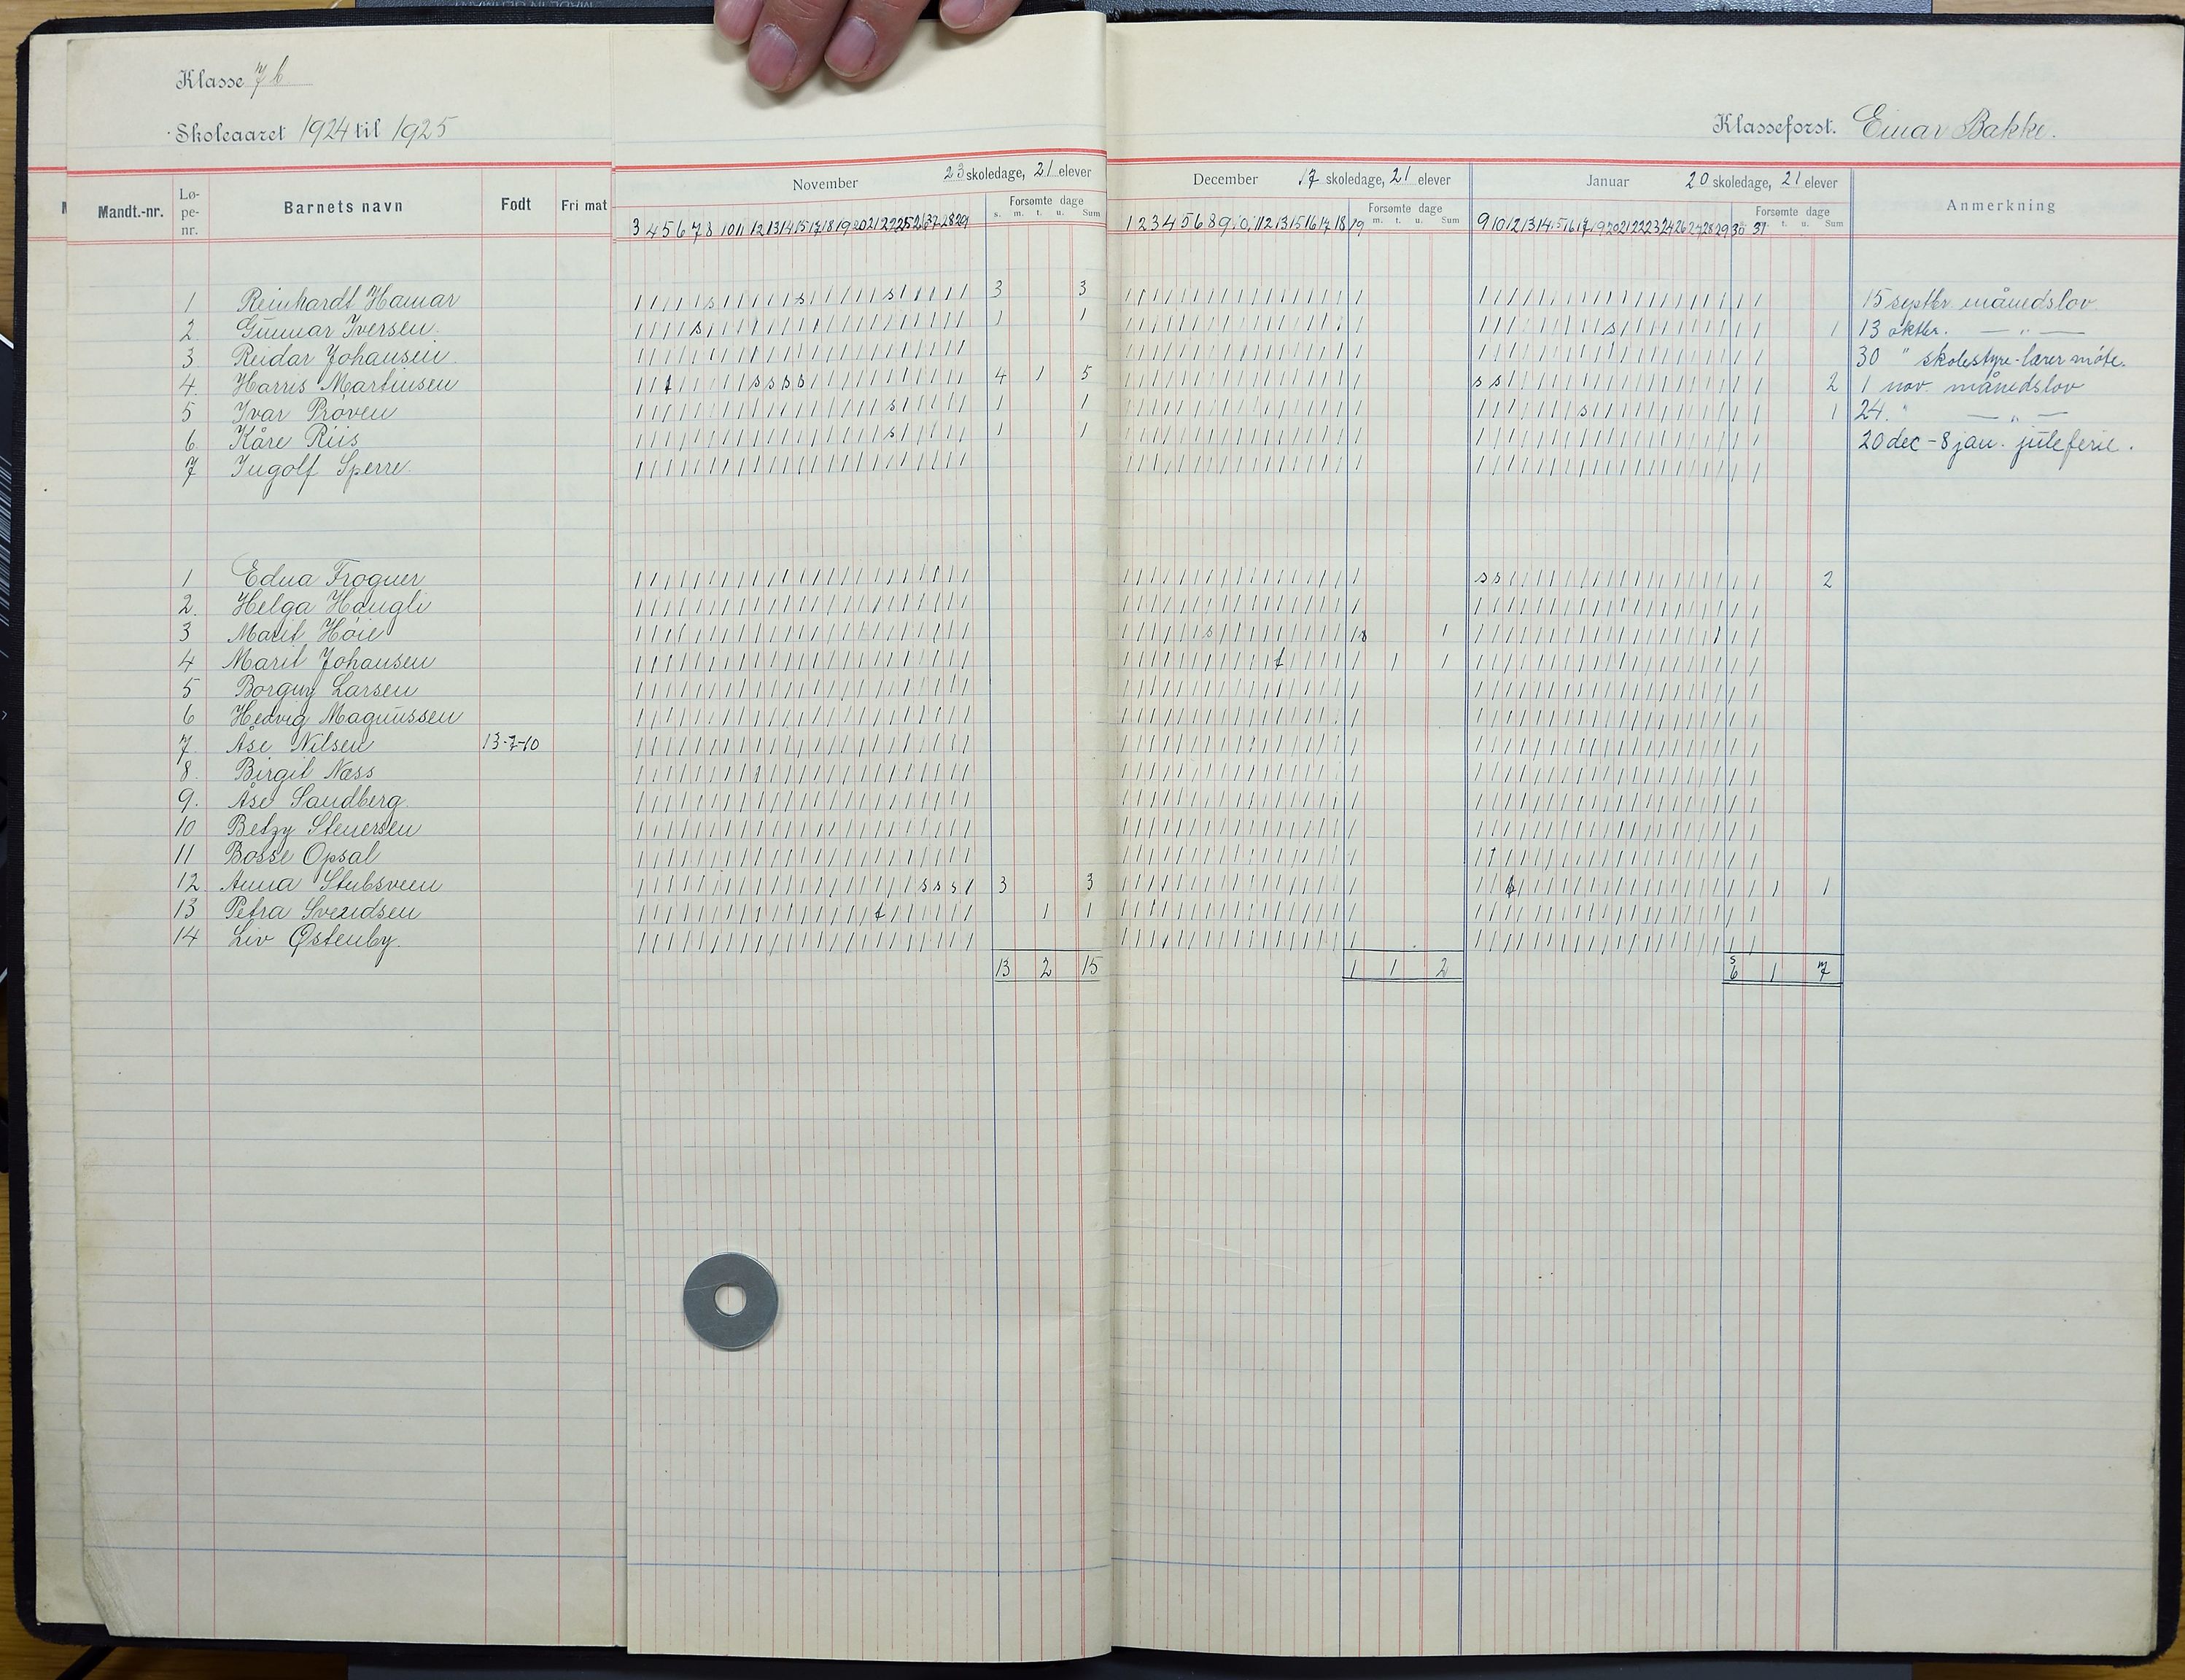 MADE IN GERMANY
Klasse 7 b
Skoleaaret 1924 til 1925
Klasseforst. Einar Bakke.
November 23 skoledage, 21 elever
December 17 skoledage, 21 elever
Januar 20 skoledage, 21 elever
Mandt.-nr. Lø-pe-nr. Barnets navn Født Fri mat
Forsømte dage
s. m. t. u. Sum
Forsømte dage
m. t. u. Sum
Forsømte dage
t. u. Sum
Anmerkning
3 4 5 6 7 8 10 11 12 13 14 15 17 18 19 20 21 22 24 25 26 27 28 29
1 2 3 4 5 6 8 9 10 11 12 13 15 16 17 18 19
9 10 12 13 14 15 16 17 19 20 21 22 23 24 26 27 28 29 30 31
1 Reinhardt Hamar 3 3 15 septbr. månedslov
2. Gunnar Iversen. 1 1 1 13 oktbr. — " —
3 Reidar Johansen. 30 " skolestyre-lærermøte.
4. Harris Martinsen 4 1 5 2 1 nov. månedslov
5 Ivar Prøven 1 1 1 24. " — " —
6 Kåre Riis 1 1 20 dec - 8 jan. juleferie.
7 Ingolf Sperre.
1 Edna Frogner 2
2. Helga Haugli
3 Marit Høie 1
4 Marit Johansen 1 1
5 Borguy Larsen
6 Hedvig Magnussen
7. Åse Nilsen 13-7-10
8. Birgit Næss
9. Åse Sandberg.
10 Betzy Stenersen
11 Bosse Opsal
12 Anna Stubsveen 3 3 1 1
13 Petra Svendsen 1 1
14 Liv Østenby.
13 2 15 1 1 2 s 6 1 7